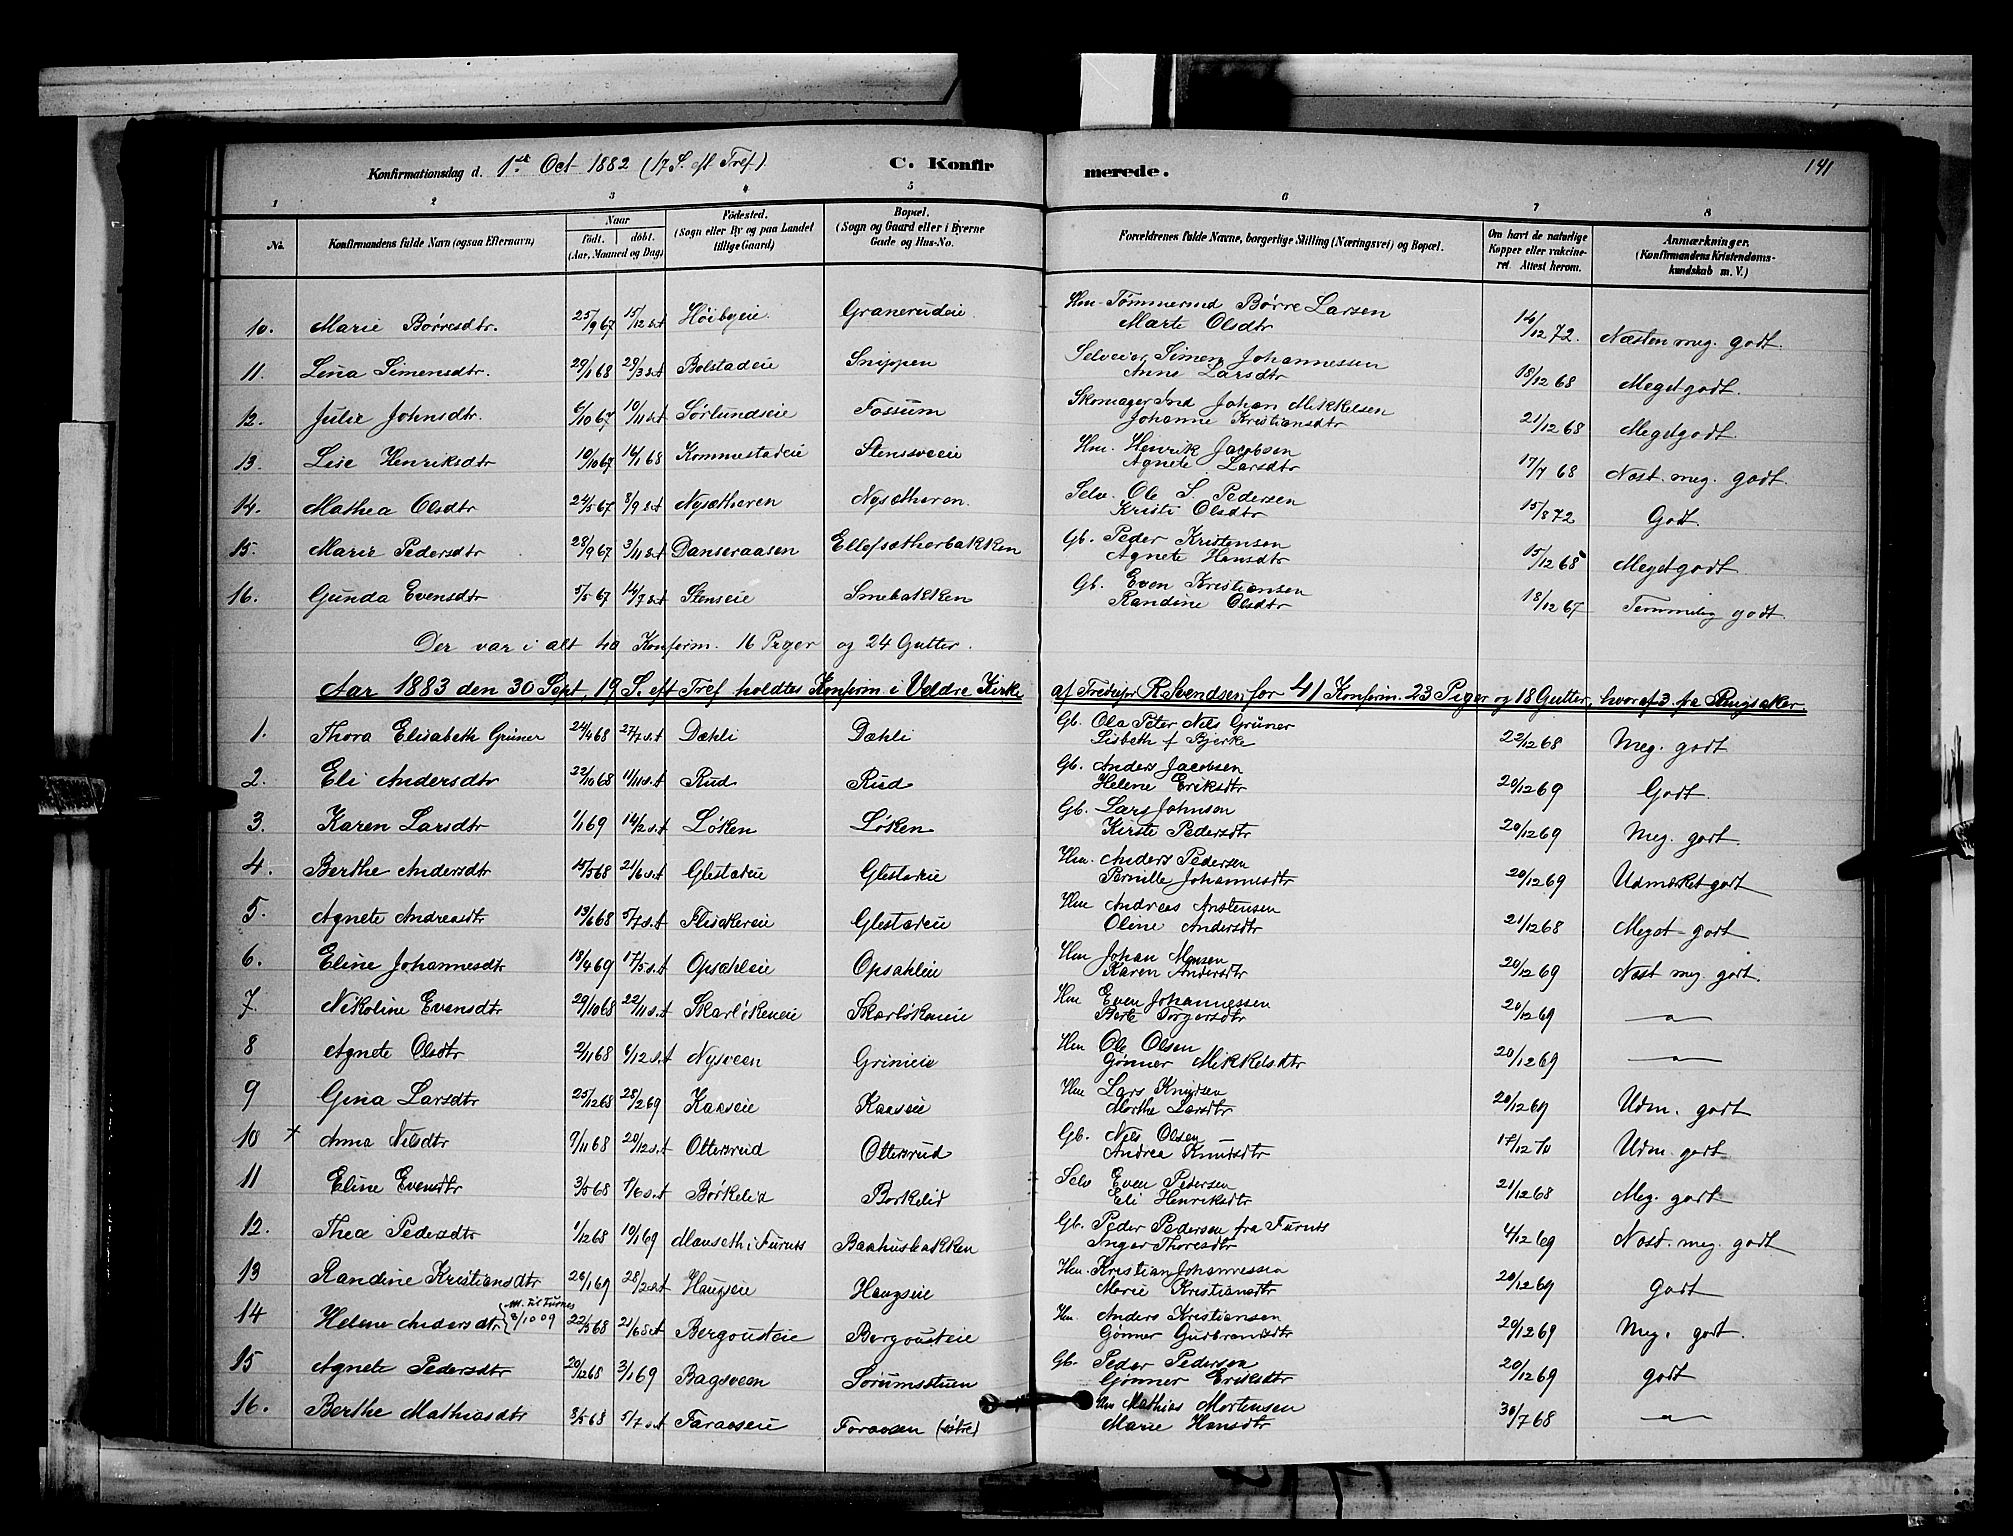 Konfirmationsdag d. 1ste Oct 1882 (17 S. ef. Tref). C. Konfirmerede. 141
1 2 3 4 5 6 7 8
No. Konfirmandens fulde Navn (ogsaa Efternavn) Naar født. døbt. (Aar, Maaned og Dag) Fødested. (Sogn eller By og paa Landet tillige Gaard) Bopæl. (Sogn og Gaard eller i Byerne Gade og Hus-No. Forældrenes fulde Navne, borgerlige Stilling (Næringsvei) og Bopæl. Om havt de naturlige Kopper eller vakcineret. Attest herom. Anmærkninger. (Konfirmandens Kristendomskundskab m. V.)
10. Marie Børresdtr. 25/9 67 15/12 s.A Høibyeie Granerudeie Hm. Tømmermd Børre Larsen Marte Olsdtr 14/12 72. Næsten meg. godt.
11. Lina Simensdtr. 29/1 68 29/3 s.A Bolstadeie Snippen Selveier Simen Johannessen Anne Larsdtr 18/12 68 Meget godt.
12. Julie Johnsdtr. 6/10 67 10/11 s.A Sørlundseie Fossum Skomager Ind Johan Mikkelsen Johanne Kristiansdtr 21/12 68 Meget godt.
13. Lise Henriksdtr 10/10 67 16/1 68 Kommestadeie Stensveeie Hm. Henrik Jacobsen Agnete Larsdtr 17/7 68 Næst. meg. godt.
14. Mathea Olsdtr 24/5 67 8/9 s.A Nysætheren Nysætheren. Selv. Ole S. Pedersen Kristi Olsdtr 15/8 72 Godt.
15. Marie Pedersdtr 28/9 67 3/11 s.A Danseraasen Ellefsætherbakken Gb. Peder Kristensen Agnete Hansdtr 15/12 68 Meget godt.
16. Gunda Evensdtr 5/5 67 14/7 s.A Stenseie Smebakken Gb. Even Kristiansen Randine Olsdtr 18/12 67 Temmelig godt.
Der var i alt 40 Konferm. 16 Piger og 24 Gutter.
Aar 1883 den 30 Sept, 19 S. eft Tref holdtes Konferm i Veldre Kirke af R Svendsen for 41 Konferm. 23 Piger og 18 Gutter, hvoraf 3 fra Ringsaker.
1. Thora Elisabeth Grüner 24/4 68 27/7 s.A Dæhli Dæhli Gb. Ola Peter Nils Grüner Lisbeth f Bjerke 22/12 68 Meg. godt
2. Eli Andersdtr 22/10 68 11/11 s.A Rud Rud Gb. Anders Jacobsen Helene Eriksdtr 20/12 69 Godt.
3. Karen Larsdtr 1/1 69 14/2 s.A Løken Løken Gb. Lars Johnson Kirste Pedersdtr 20/12 69 Meg. godt
4. Berthe Andersdtr 15/5 68 21/6 s.A Glestadeie Glestadeie Hm. Anders Pedersen Pernille Johannesdtr 20/12 69 Udmærket godt
5. Agnete Andreasdtr 13/6 68 5/7 s.A Flisakereie Glestadeie Hm Andreas Anstensen Oline Andersdtr 21/12 68 Meget godt
6. Eline Johannesdtr 18/4 69 17/5 s.A Opsahleie Opsahleie Hm Johan Monsen Karen Andersdtr 20/12 69 Næst meg. godt.
7 Nikoline Evensdtr 29/10 68 22/11 s.A Skarløkeneie Skarløkeneie Hm Even Johannessen Berte Torgersdtr 20/12 69 —„—
8 Agnete Olsdtr 2/11 68 6/12 s.A Nysveen Grimeie Hm Ole Olsen Gønner Mikkelsdtr 20/12 69 —„—
9 Gina Larsdtr 25/12 68 28/2 69 Kaaseie Kaaseie Hm Lars Knudsen Marthe Larsdtr 20/12 69 Udm. godt
10 + Anna Nilsdtr 9/11 68 20/12 s.A Ottersrud Ottersrud Gb. Nils Olsen Andrea Knudsdtr 17/12 70 Udm. godt
11 Eline Evensdtr 3/5 68 7/6 s.A Børkelid Børkelid Selv Even Pedersen Eli Henriksdtr 21/12 68 Meg. godt
12. Thea Pedersdtr 1/12 68 10/1 69 Mæhseth i Furnes Baahusbakken Gb. Peder Pedersen fra Furnes Inger Thoresdtr 4/12 69 Næst. meg. godt
13 Randine Kristiansdtr 26/1 69 28/2 s.A Haugseie Haugseie Hm. Kristian Johannessen Marie Kristiansdtr 20/12 69 godt
14 Helene Andersdtr {att. til Furnes 8/10 09 22/5 68 21/6 s.A Bergousteie Bergousteie Hm. Anders Kristiansen Gønner Gudbrandsdtr 20/12 69 Meg. godt.
15 Agnete Pedersdtr 20/12 68 3/1 69 Bagsveen Sørumsstuen Gb. Peder Pedersen Gønner Eriksdtr 20/12 69 godt
16. Berthe Mathiasdtr 8/5 68 5/7 s.A Faraaseie Foraasen (østre) Hm Mathias Mortensen Marie Hansdtr 30/7 68 —„—